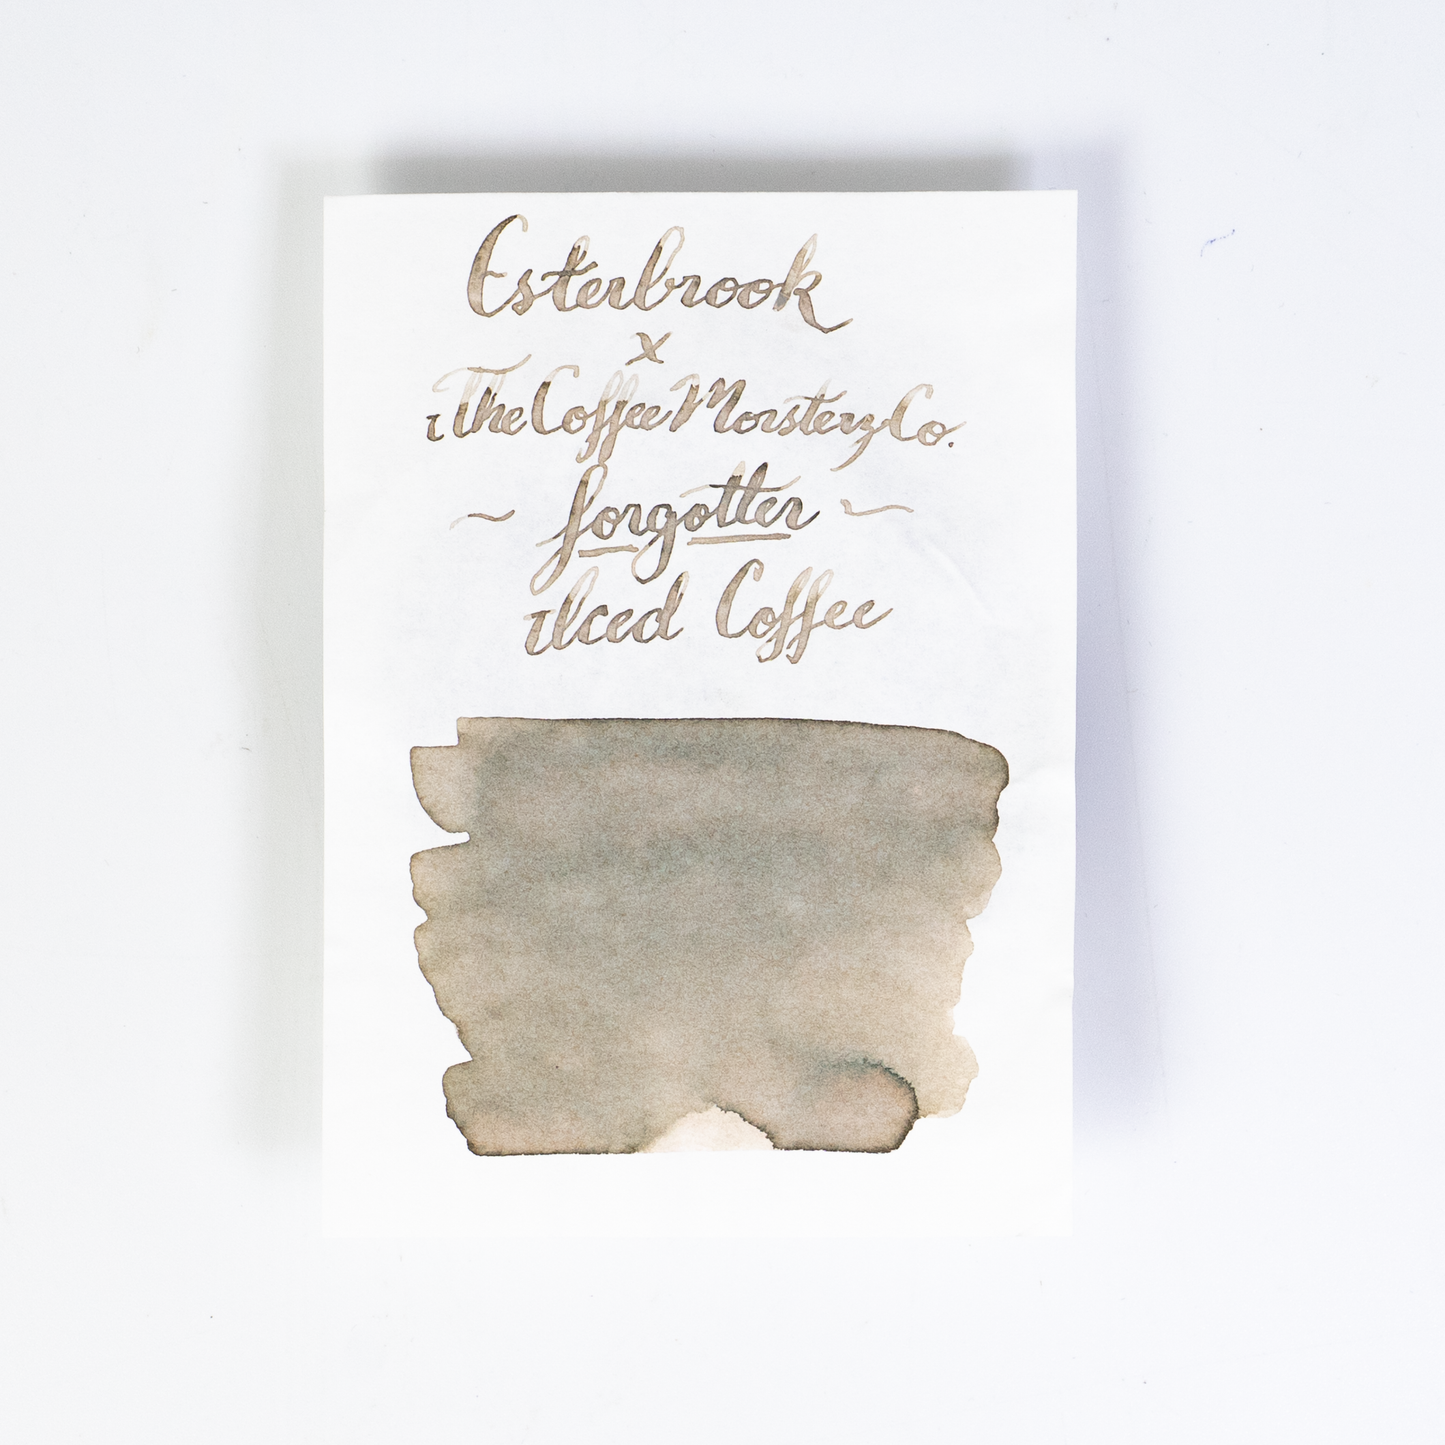 Esterbrook
x
The Coffee Monsterz Co.
~ forgotten ~
Iced Coffee